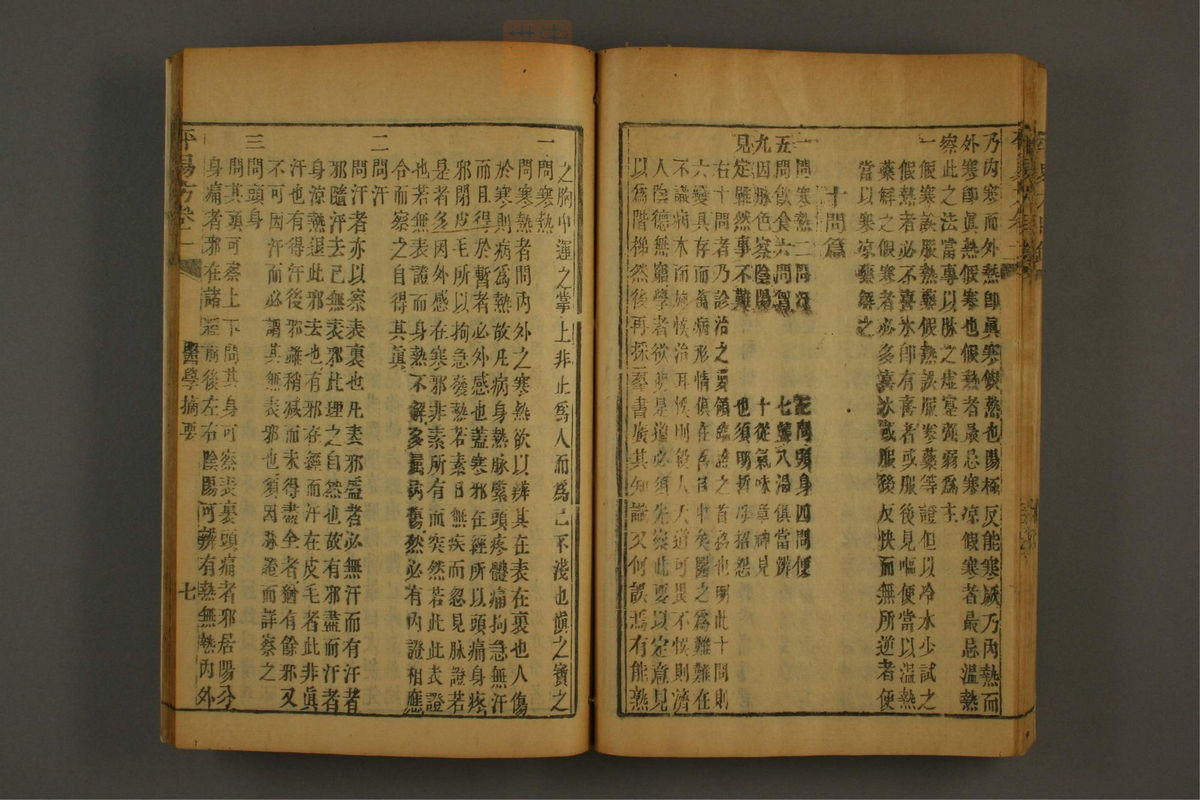 乃內寒而外熱卽眞寒假熱也陽極反能寒厥乃內熱而
外寒卽眞熱假寒也假熱者最忌寒凉假寒者最忌溫熱
察此之法當專以脉之虛寔强弱爲主
一假寒誤服熱藥假熱誤服寒藥等證但以冷水少試之
假熱者必不喜水卽有喜者或服後見嘔便當以溫熱
藥解之假寒者必多喜水或服後反快而無所逆者便
當以寒凉藥解之
十問篇
一問寒熱二問汗 三問頭身四問便
五問飲食六問胸 七聾八渴俱當辨
九因脉色察陰陽 十從氣味章神見
見定雖然事不難 也須明哲毋招怨
右十問者乃診治之要領臨證之首務也明此十問則
六變具存而萬病形情俱在吾目中矣醫之爲難難在
不識病本而施悞治耳悞則殺人天道可畏不悞則濟
人陰德無窮學者欲明是道必須先察此要以定意見
以爲階梯然後再採羣書廣其知識又何誤焉有能熟
之胸中運之掌上非止爲人而爲己不淺也愼之寶之
一問寒熱
問寒熱者問內外之寒熱欲以辨其在表在裏也人傷
於寒則病爲熱故凡病身熱脉緊頭疼體痛拘急無汗
而且得於暫者必外感也蓋寒邪在經所以頭痛身疼
邪閉皮毛所以拘急發熱若素日無疾而忽見脉證若
是者多因外感在寒邪非素所有而突然若此此表證
也若無表證而身熱不解多屬內傷然必有內證相應
合而察之自得其眞
二問汗
問汗者亦以察表裏也凡表邪盛者必無汗而有汗者
邪隨汗去已無表邪此理之自然也故有邪盡而汗者
身涼熱退此邪去也有邪在經而汗在皮毛者此非眞
汗也有得汗後邪雖稍减而未得盡全者猶有餘邪又
不可因汗而必謂其無表邪也須因脉證而詳察之
三問頭身
問其頭可察上下問其身可察表裏頭痛者邪居陽分
身痛者邪在諸經前後左右陰陽可辨有熱無熱內外
平易方卷一
醫學摘要
七